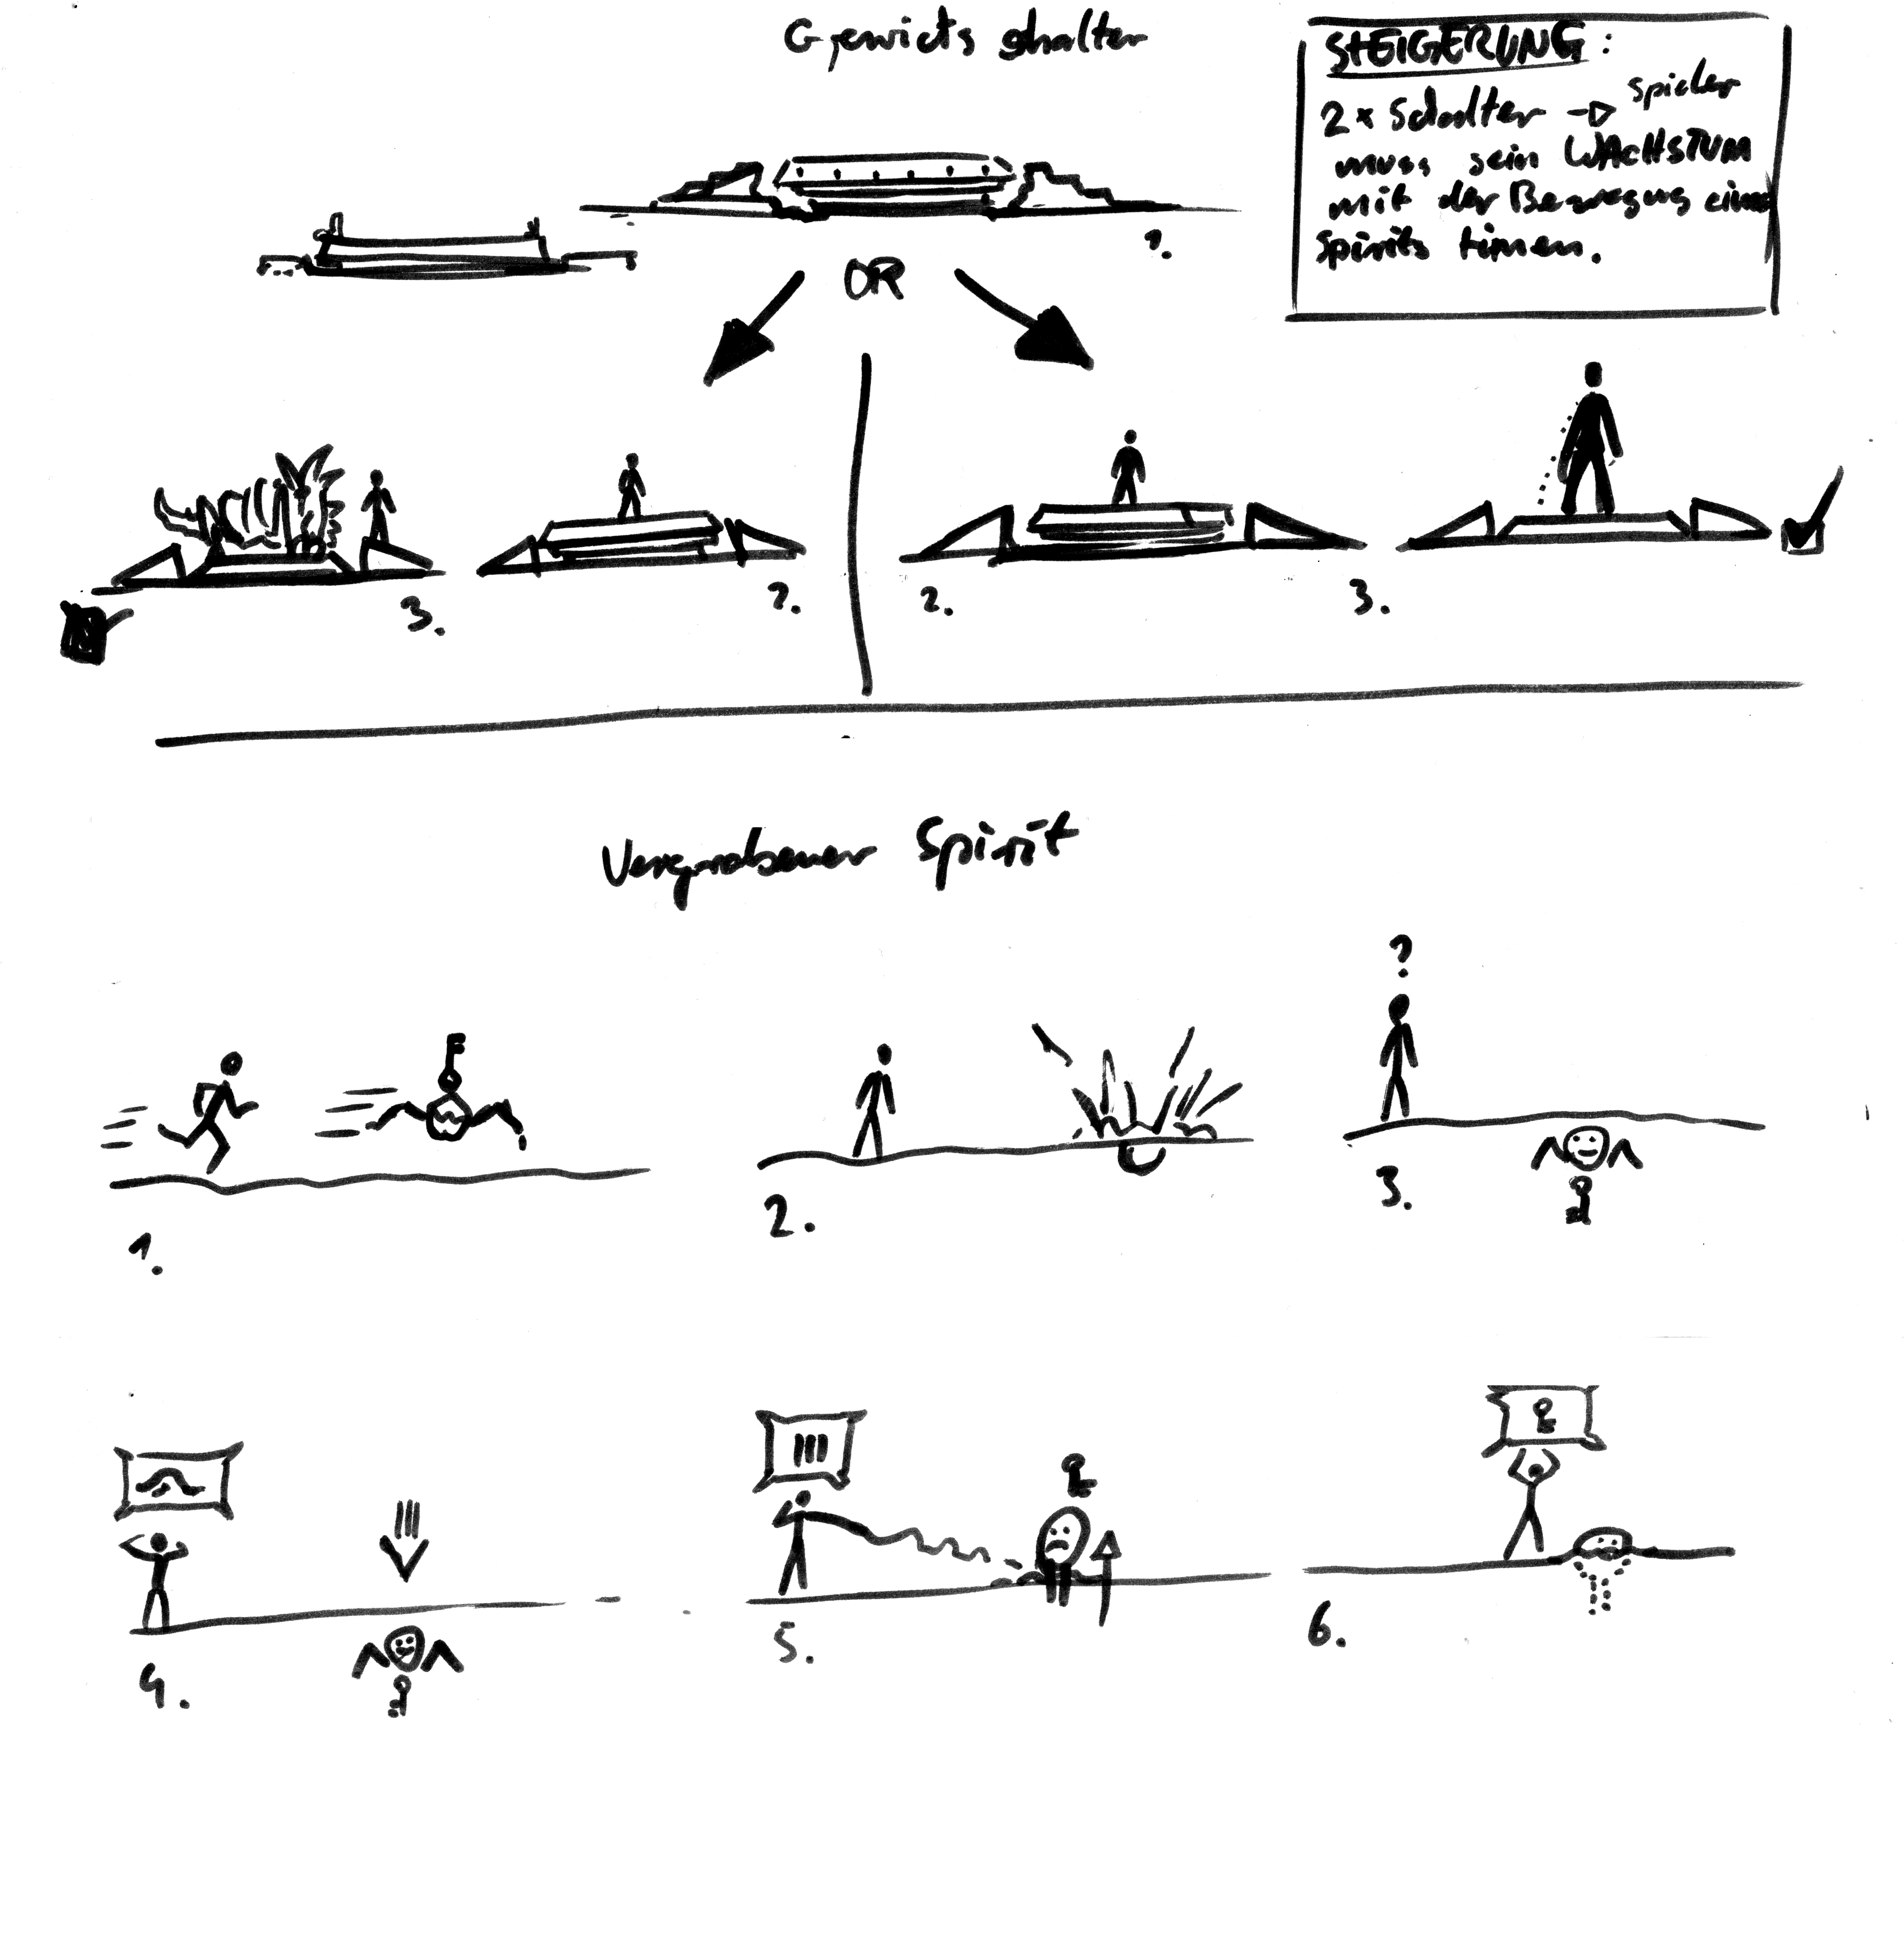 Gewichtsshalter
STEIGERUNG:
2x Schalter → Spieler
muss sein WACHSTUM
mit der Bewegung eines
Spirits timen.
1.
OR
3.
2.
2.
3.
Vergrabener Spirit
?
1.
2.
3.
4.
5.
6.